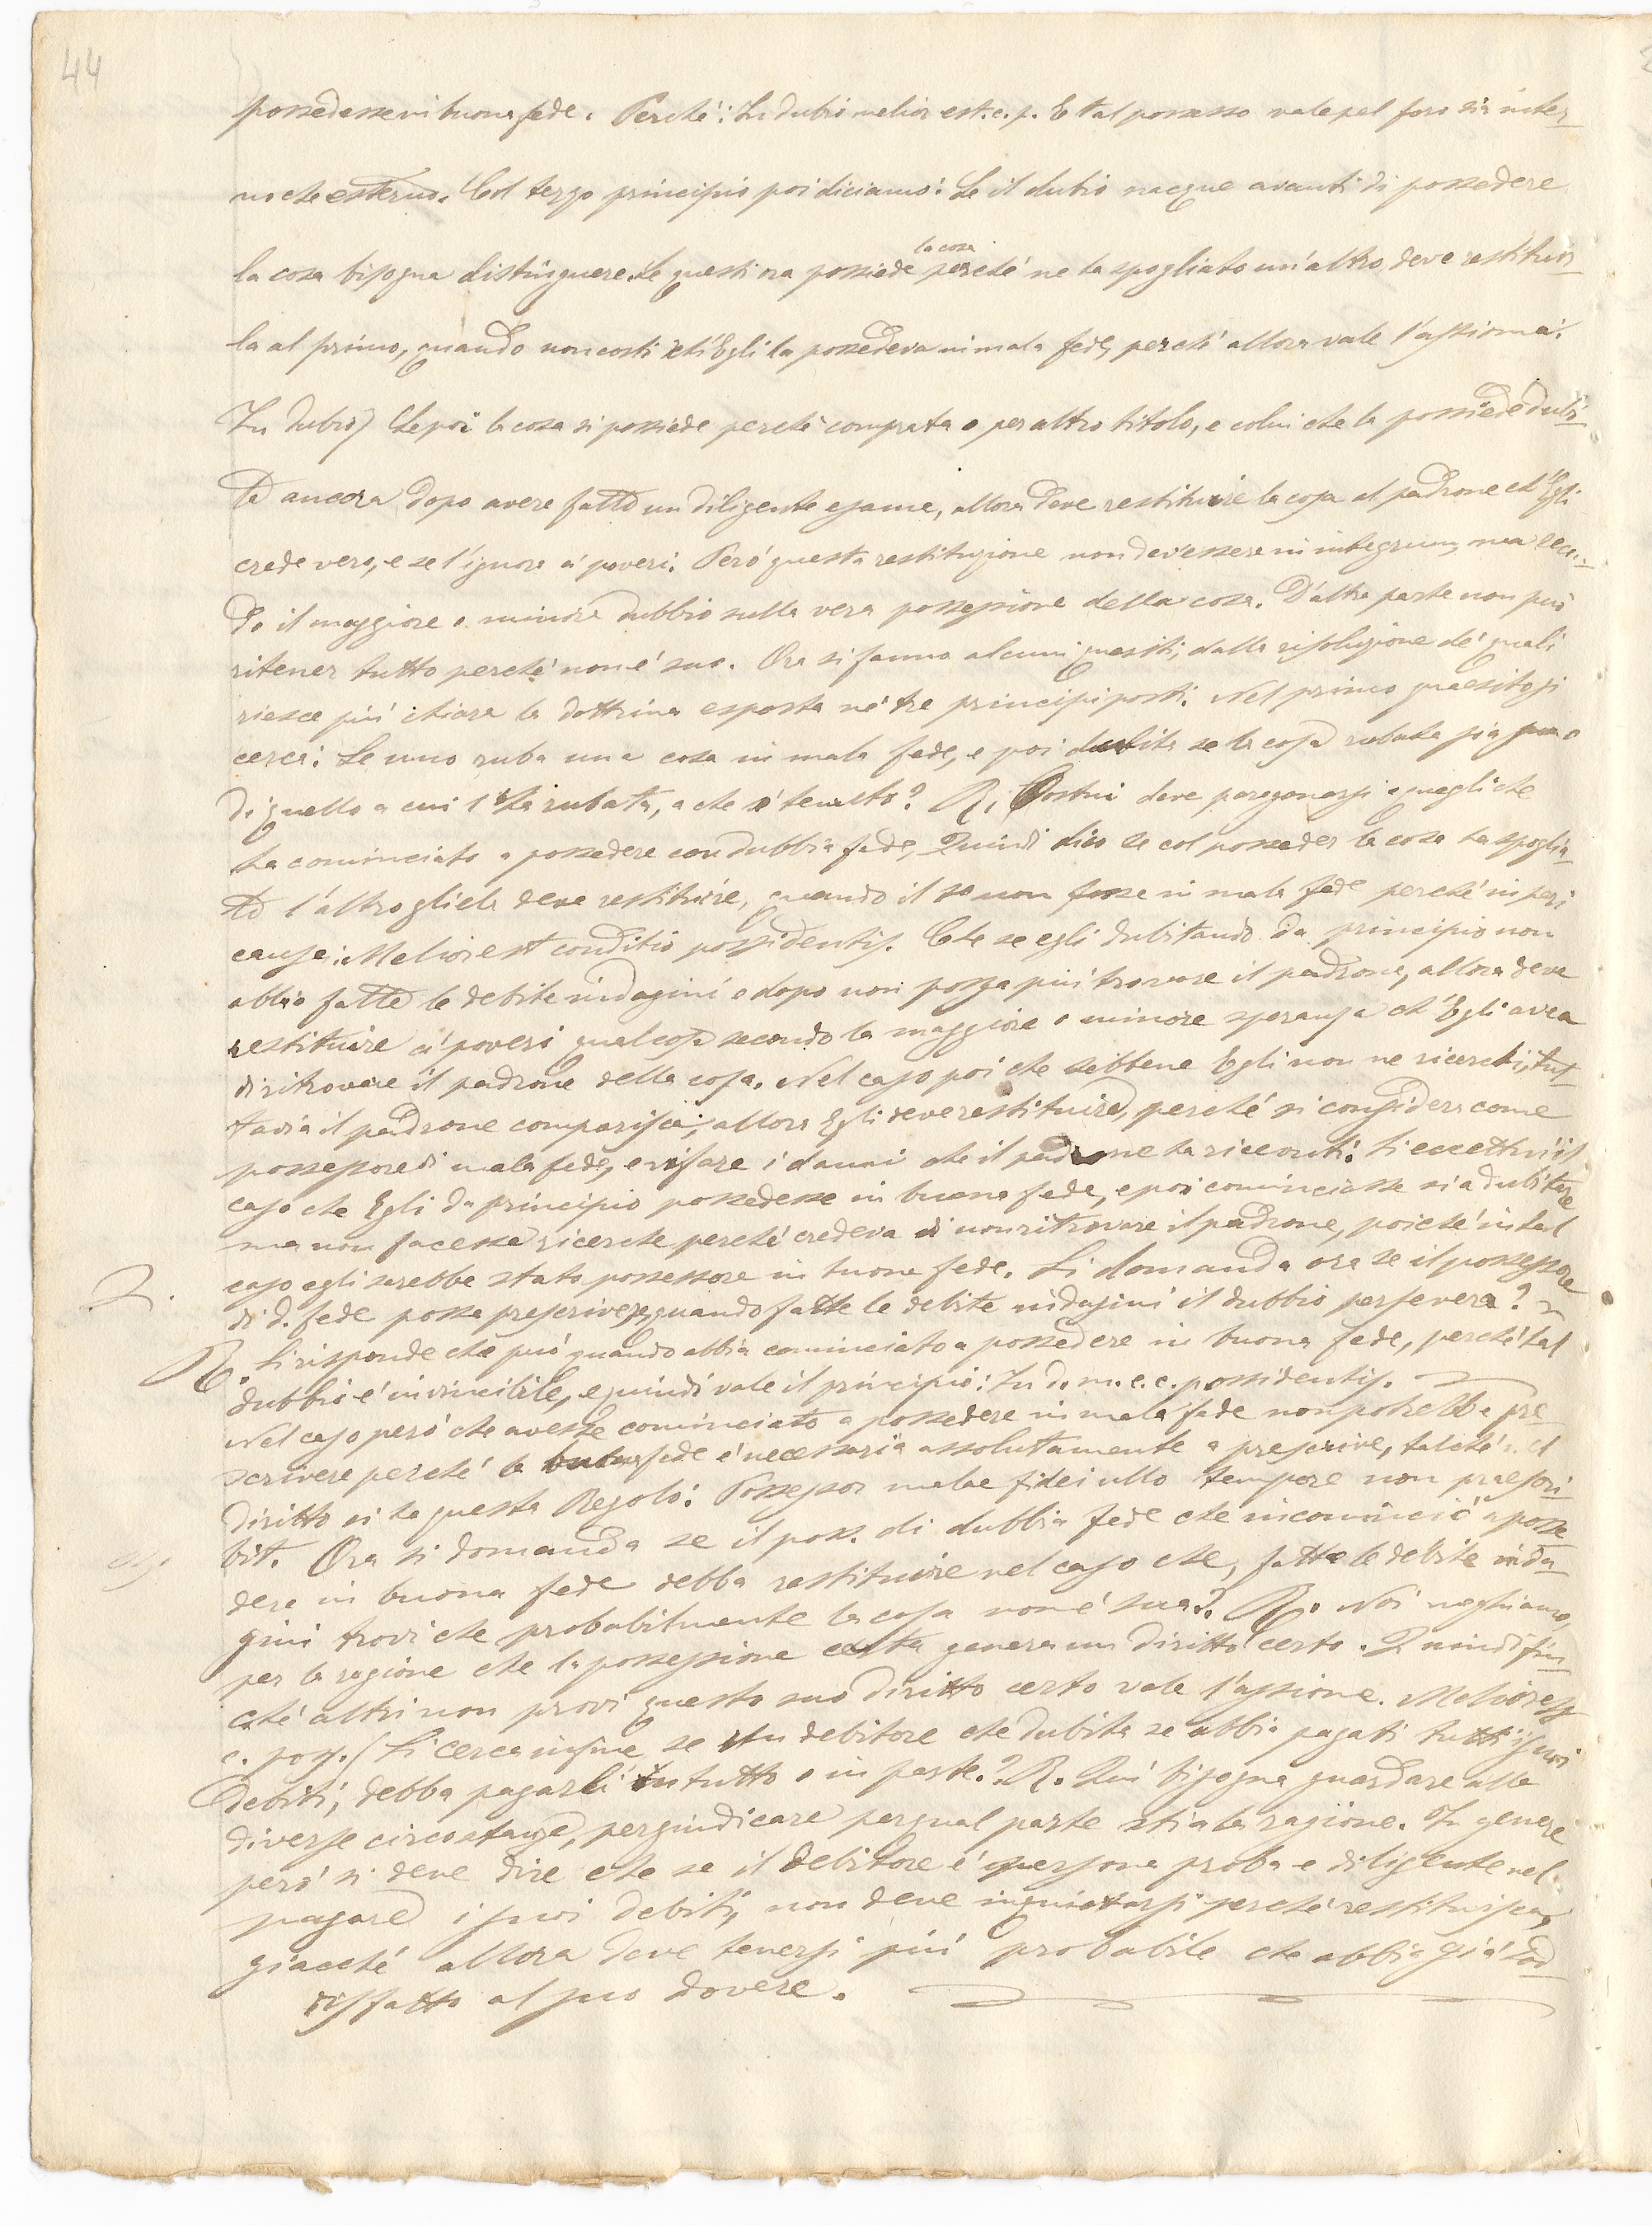 44
possedesse in buona fede. Perché: In dubio melior est. c. p. E tal possesso vale pel foro sia inter-
no che esterno. Col terzo principio poi diciamo: Se il dubio nacque avanti di possedere
la cosa
la cosa bisogna distinguere. Se questi ora possiede perché ne ha spogliato un'altro, deve restituir-
la al primo, quando non costi ch'Egli la possedeva in mala fede, perché allora vale l'assioma:
In dubio) Se poi la cosa si possiede perché comprata o per altro titolo, e colui che la possiede dubi-
ta ancora dopo avere fatto un diligente esame, allora deve restituire la cosa al padrone ch'Egli
crede vero, e se l'ignora a' poveri. Peró questa restituzione non dev'essere in integrum, ma secon-
do il maggiore o minore dubbio sulla vera possessione della cosa. D'altra parte non può
ritener tutto perché non é suo. Ora si fanno alcuni quesiti, dalla risoluzione de' quali
riesce piú chiara la dottrina esposta ne' tre principi posti. Nel primo quaesito si
cerca: Se uno ruba una cosa in mala fede, e poi dubita se la cosa rubata sia
di quello a cui l'ha rubata, a che é tenuto? R. Costui deve paragonarsi a quegli che
ha cominciato a possedere con dubbia fede, Quindi dico se col posseder la cosa ha spoglia-
to l'altro gliela deve restituire, quando il non fosse in mala fede perché in pari
causa: Melior est conditio possidentis. Che se egli dubitando da principio non
abbia fatte le debite indagini e dopo non possa piú trovare il padrone, allora deve
restituire a' poveri qualcosa secondo la maggiore o minore speranza ch'Egli avea
di ritrovare il padrone della cosa. Nel caso poi che sebbene Egli non ne ricerchi, tut-
tavia il padrone comparisca, allora Egli deve restituire, perché si considera come
possessore di mala fede, e rifare i danni che il padrone ha ricevuti. Si eccettui il
caso che Egli da principio possedesse in buona fede, e poi cominciasse si a dubitare
ma non facesse ricerche perché credeva di non ritrovare il padrone, poiché in tal
caso egli sarebbe stato possessore in buona fede. Si domanda ora se il possessore
2.
di d. fede possa prescrivere, quando fatte le debite indagini il dubbio persevera?
R. Si risponde che può quando abbia cominciato a possedere in buona fede, perché tal
dubbio é invincibile, e quindi vale il principio: In d. m. e. c. possidentis.
Nel caso peró che avesse cominciato a possedere in mala fede non potrebbe pre-
scrivere perché la buona fede é necessaria assolutamente a prescrive, talché nel
diritto si ha questa Regola: Possessor malae fidei ullo tempore non praescri-
bit. Ora si domanda se il poss. di dubbia fede che incominciò a posse
dere in buona fede debba restituire nel caso che, fatte le debite inda-
gini trovi che probabilmente la cosa non é sua? R. Noi neghiamo,
per la ragione che la possessione certa genera un diritto certo. Quindi fin-
ché altri non provi questo suo diritto certo vale l'assioma. Melior est
c. poss. (Si cerca infine se un debitore che dubita se abbia pagati tutti i suoi
debiti, debba pagarli in tutto o in parte? R. Qui bisogna guardare alle
diverse circostanze, per giudicare per qual parte stia la ragione. In genere
peró si deve dire che se il debitore é persona proba e diligente nel
pagare i suoi debiti, non deve inquietarsi perché restituisca,
giacché allora deve tenersi piú probabile che abbia giá sod-
disfatto al suo dovere.